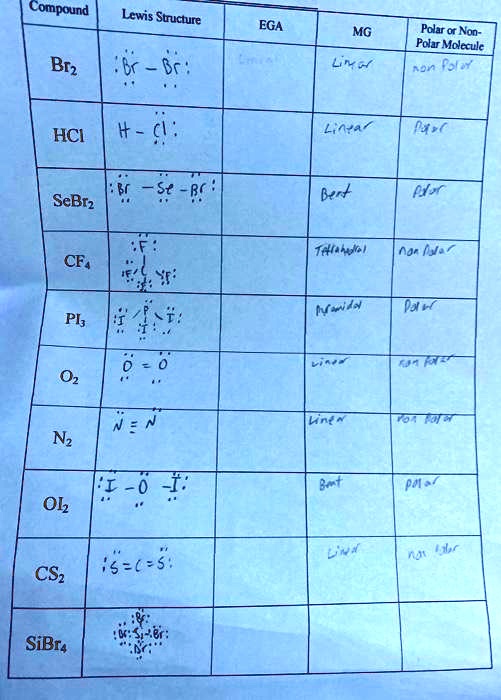 Compound Lewis Structure EGA MG Polar or Non-
Polar Molecule
Br2 :Br – Br: Linear Linear non Polar
HCl H – Cl: Linear Polar
SeBr2 :Br – Se – Br: Bent Polar
CF4 :F: Tetrahedral non Polar
:F C F:
:F:
PI3 :I P I: Pyramidal Polar
:I:
O2 O = O Linear non Polar
N2 N ≡ N Linear non Polar
OI2 :I – O – I: Bent polar
CS2 :S = C = S: Linear non Polar
SiBr4 :Br:
:Br – Si – Br:
:Br: